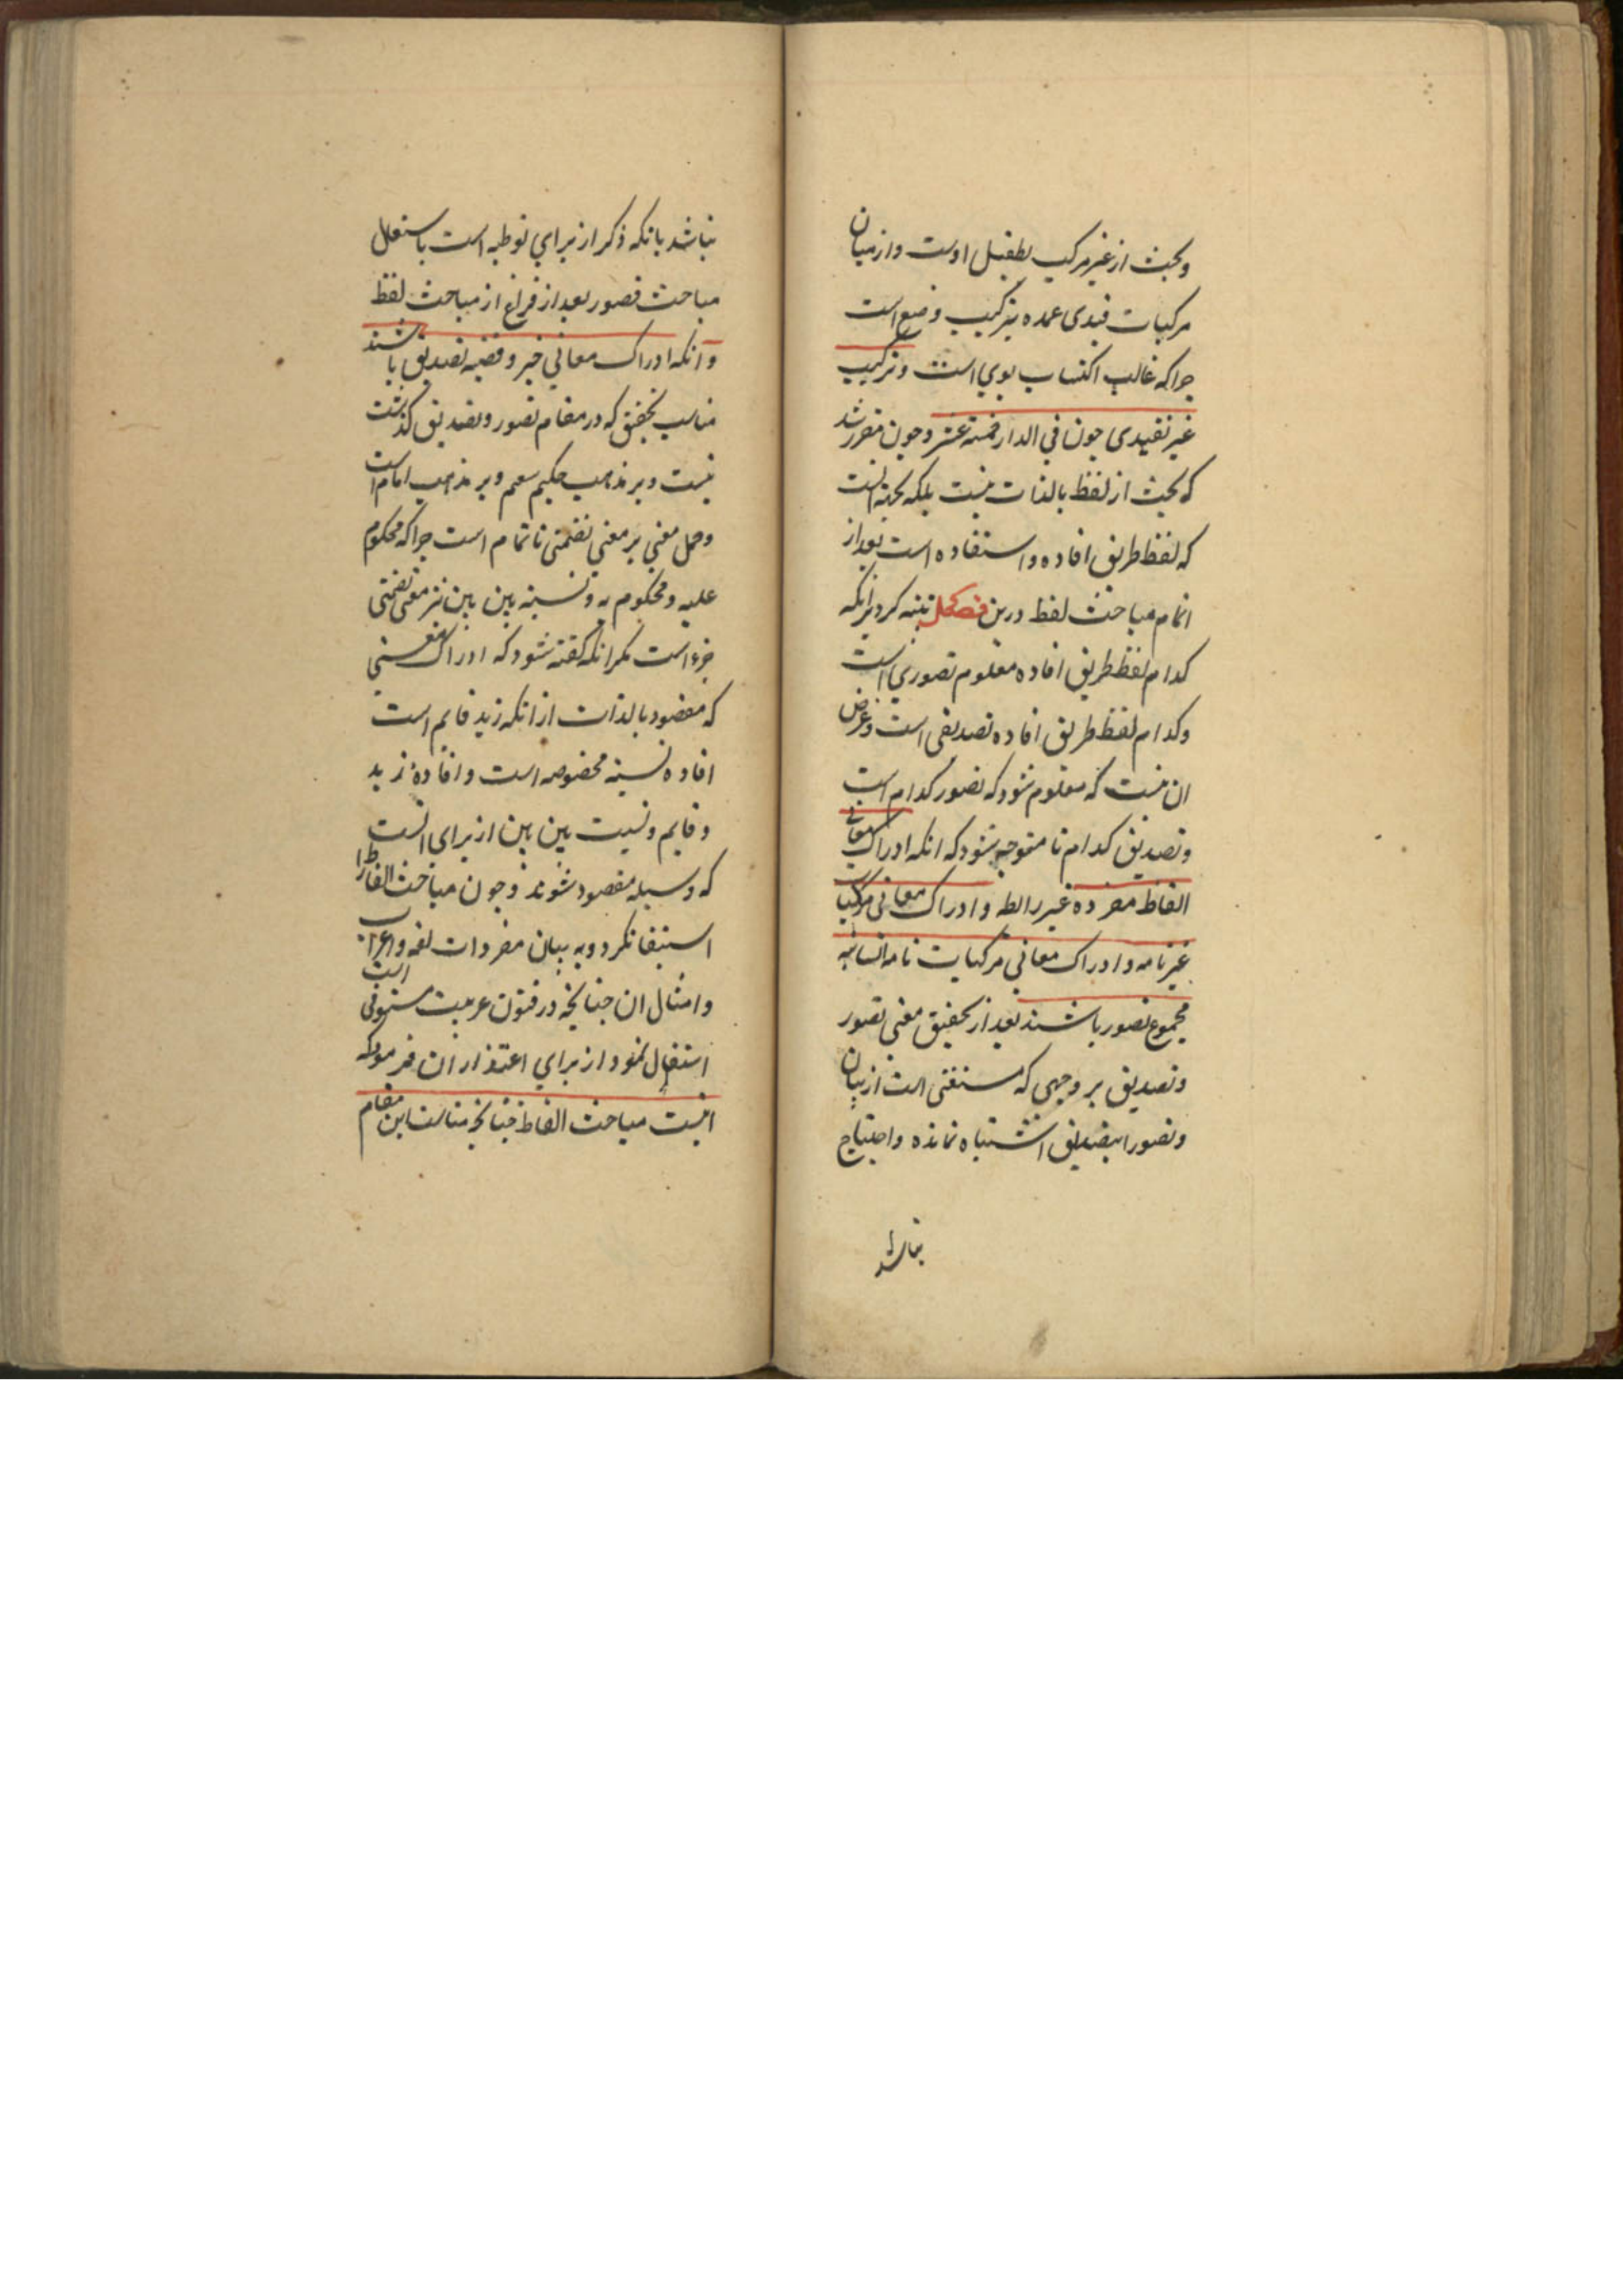 وبحث از غیر مرکب بطفیل اوست واز میان
مرکبات قیدی عمده ترکیب وضع است
جرا که غالب اکتساب بوی است وترکیب
غیر تقییدی جون فی الدار خمسة عشر وجون مقرر شد
که بحث از لفظ بالذات نیست بلکه بجهة انست
که لفظ طریق افاده واستفاده است بعد از
اتمام مباحث لفظ درین فصل تنبیه کرد برانکه
کدام لفظ طریق افاده معلوم تصوری است
وکدام لفظ طریق افاده تصدیقی است وغرض
ان نیست که معلوم شود که تصور کدام است
وتصدیق کدام تا متوجه شود که انکه ادراک معانی
الفاظ مفرده غیر رابطه وادراک معانی مرکبات
غیر تامه وادراک معانی مرکبات تامه انشائیه
مجموع تصور باشند بعد از تحقیق معنی تصور
وتصدیق بر وجهی که مستغنی است از بیان
وتصور را بتصدیق اشتباه نمانده واحتیاج
نباشد
نباشد بانکه ذکر از برای توطیه است باستعمال
مباحث تصور بعد از فراغ از مباحث لفظ
وانکه ادراک معانی خبر وقضیه تصدیق باشند
مناسب تحقیق که در مقام تصور وتصدیق کذشت
نیست وبر مذهب حکیم سهم وبر مذهب امام است
وحمل معنی بر معنی تضمنی ناتمام است جرا که محکوم
علیه ومحکوم به ونسبته بین بین نیز معنی تضمنی
جزء است مکر انکه کفته شود که ادراک معنیی
که مقصود بالذات از انکه زید قایم است
افاده نسبته مخصوصه است وافاده زید
وقایم ونسبت بین بین از برای انست
که وسیله مقصود شوند وجون مباحث الفاظ را
استیفا نکرد وبه بیان مفردات لغه واعراب
وامثال ان جنانجه در فنون عربیت مستوفی است
اشتغال ننمود از برای اعتذار ان فرمود که
اینست مباحث الفاظ جنانجه مناسب این مقام